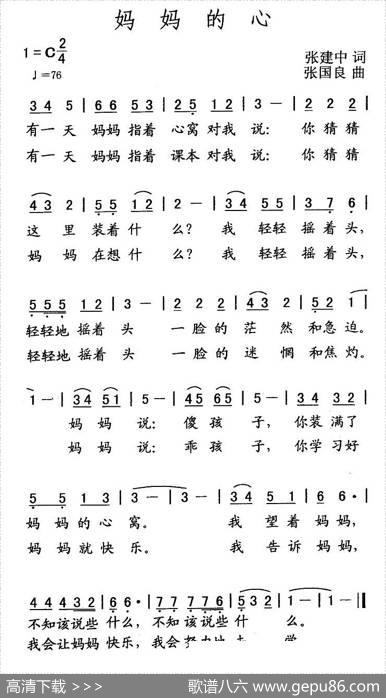 妈妈的心
1=C 2/4
♩=76
张建中 词
张国良 曲
3 4 5 | 6 6 5 3 | 2 5 1 2 | 3 - | 2 2 2 |
有一天 妈妈指着 心窝对我 说: 你猜猜
有一天 妈妈指着 课本对我 说: 你猜猜
4 3 2 | 5 5 1 2 | 2 - | 3 4 5 5 | 3 7 6 |
这里装着什么? 我轻轻摇着头,
妈妈在想什么? 我轻轻摇着头,
5 5 5 1 2 | 3 - | 2 2 2 | 4 3 2 | 5 2 1 |
轻轻地 摇着头 一脸的茫然和急迫。
轻轻地 摇着头 一脸的迷惘和焦灼。
1 - | 3 4 5 1 | 5 - | 4 5 6 5 | 5 - | 3 4 3 2 |
妈妈说: 傻孩子, 你装满了
妈妈说: 乖孩子, 你学习好
5 5 1 3 | 3 - | 3 - | 3 4 5 1 | 6 6· |
妈妈的心窝。 我望着妈妈,
妈妈就快乐。 我告诉妈妈,
4 4 4 3 2 | 6 6· | 7 7 7 7 6 | 5 3 2 | 1 - | 1 - ‖
不知该说些 什么, 不知该说些什么。
我会让妈妈 快乐, 我会
高清下载 >>>
歌谱八六 www.gepu86.com